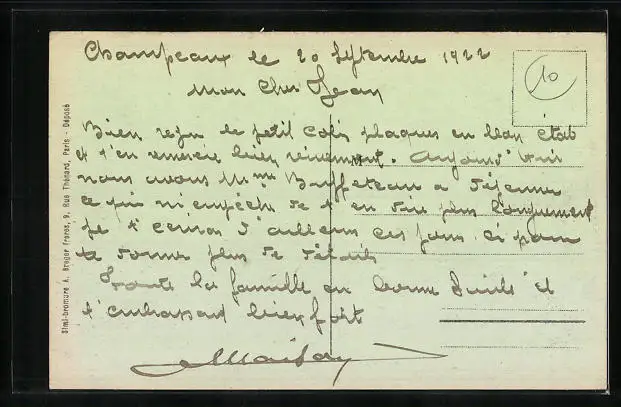 Champeaux le 20 Septembre 1922
10
Mon Cher Jean
Bien reçu le petit colis plaques en bon état
et t'en remercie bien vivement. Aujourd'hui
nous avons Mme Buffeteau a déjeuner
ce qui m'empêche de t'en dire plus longuement
je t'écrirai d'ailleurs ces jours ci pour
te donner plus de détails
Toute la famille en bonne Santé et
t'embrassent bien fort
Simi-bromure A. Breger Frères, 9, Rue Thénard, Paris - Déposé